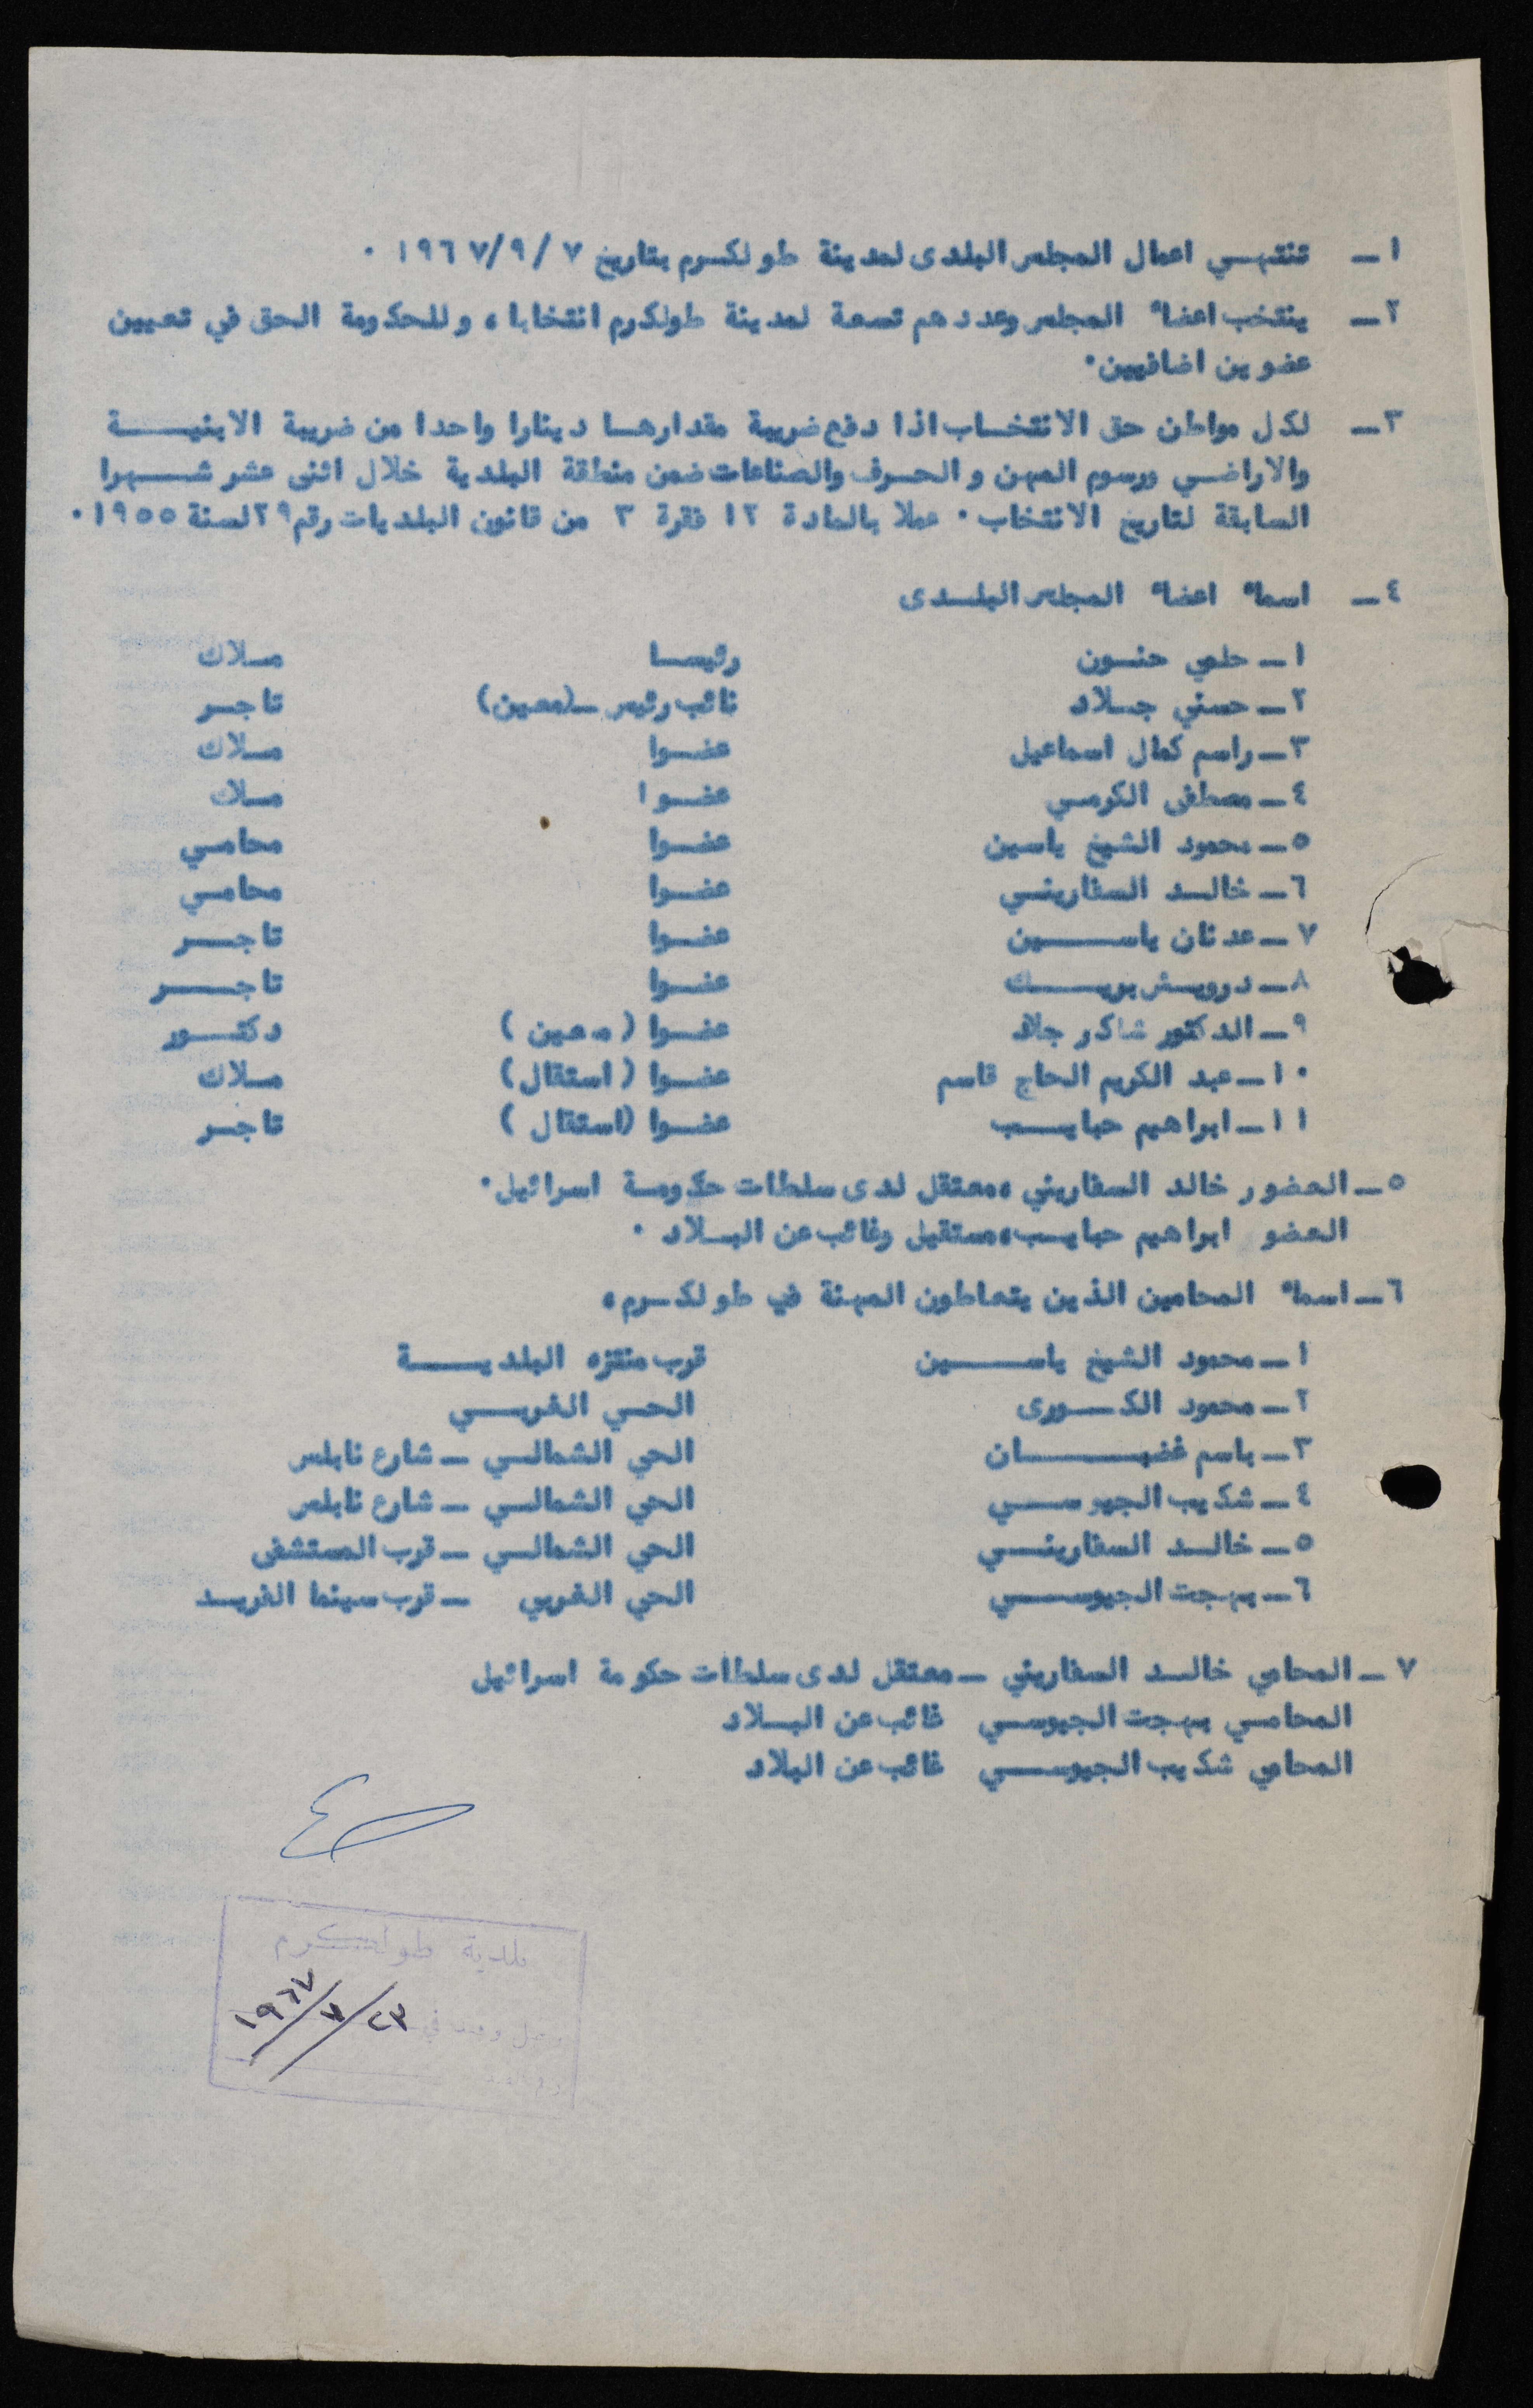 ١ــ تنتهي اعمال المجلس البلدى لمدينة طولكرم بتاريخ ٧/٩/١٩٦٧ ٠
٢ــ ينتخب اعضاء المجلس وعددهم تسعة لمدينة طولكرم انتخابا ، وللحكومة الحق في تعيين
عضوين اضافيين٠
٣ــ لكل مواطن حق الانتخاب اذا دفع ضريبة مقدارها دينارا واحدا من ضريبة الابنية
والاراضي ورسوم المهن والحرف والصناعات ضمن منطقة البلدية خلال اثنى عشر شهرا
السابقة لتاريخ الانتخاب ٠ عملا بالمادة ١٢ فقرة ٣ من قانون البلديات رقم ٢٩ لسنة ١٩٥٥ ٠
٤ــ اسماء اعضاء المجلس البلدى
١ــ حلمي حنون رئيسا ملاك
٢ــ حسني جلاد نائب رئيس ــ(معين) تاجر
٣ــ راسم كمال اسماعيل عضوا ملاك
٤ــ مصطفى الكرمي عضوا ملاك
٥ــ محمود الشيخ ياسين عضوا محامي
٦ــ خالد السفاريني عضوا محامي
٧ــ عدنان ياسين عضوا تاجر
٨ــ درويش بويك عضوا تاجر
٩ــ الدكتور شاكر جلاد عضوا (معين) دكتور
١٠ــ عبد الكريم الحاج قاسم عضوا (استقال) ملاك
١١ــ ابراهيم حبايب عضوا (استقال) تاجر
٥ــ العضور خالد السفاريني ،معتقل لدى سلطات حكومة اسرائيل٠
العضو ابراهيم حبايب،مستقيل وغائب عن البلاد ٠
٦ــ اسماء المحامين الذين يتعاطون المهنة في طولكرم،
١ــ محمود الشيخ ياسين قرب منتزه البلدية
٢ــ محمود الكورى الحي الغربي
٣ــ باسم غضبان الحي الشمالي ــ شارع نابلس
٤ــ شكيب الجيوسي الحي الشمالي ــ شارع نابلس
٥ــ خالد السفاريني الحي الشمالي ــ قرب المستشفى
٦ــ بهجت الجيوسي الحي الغربي ــ قرب سينما الفريد
٧ــ المحامي خالد السفاريني ــ معتقل لدى سلطات حكومة اسرائيل
المحامي بهجت الجيوسي غائب عن البلاد
المحامي شكيب الجيوسي غائب عن البلاد
بلدية طولكرم
٢٣/٧/١٩٦٧